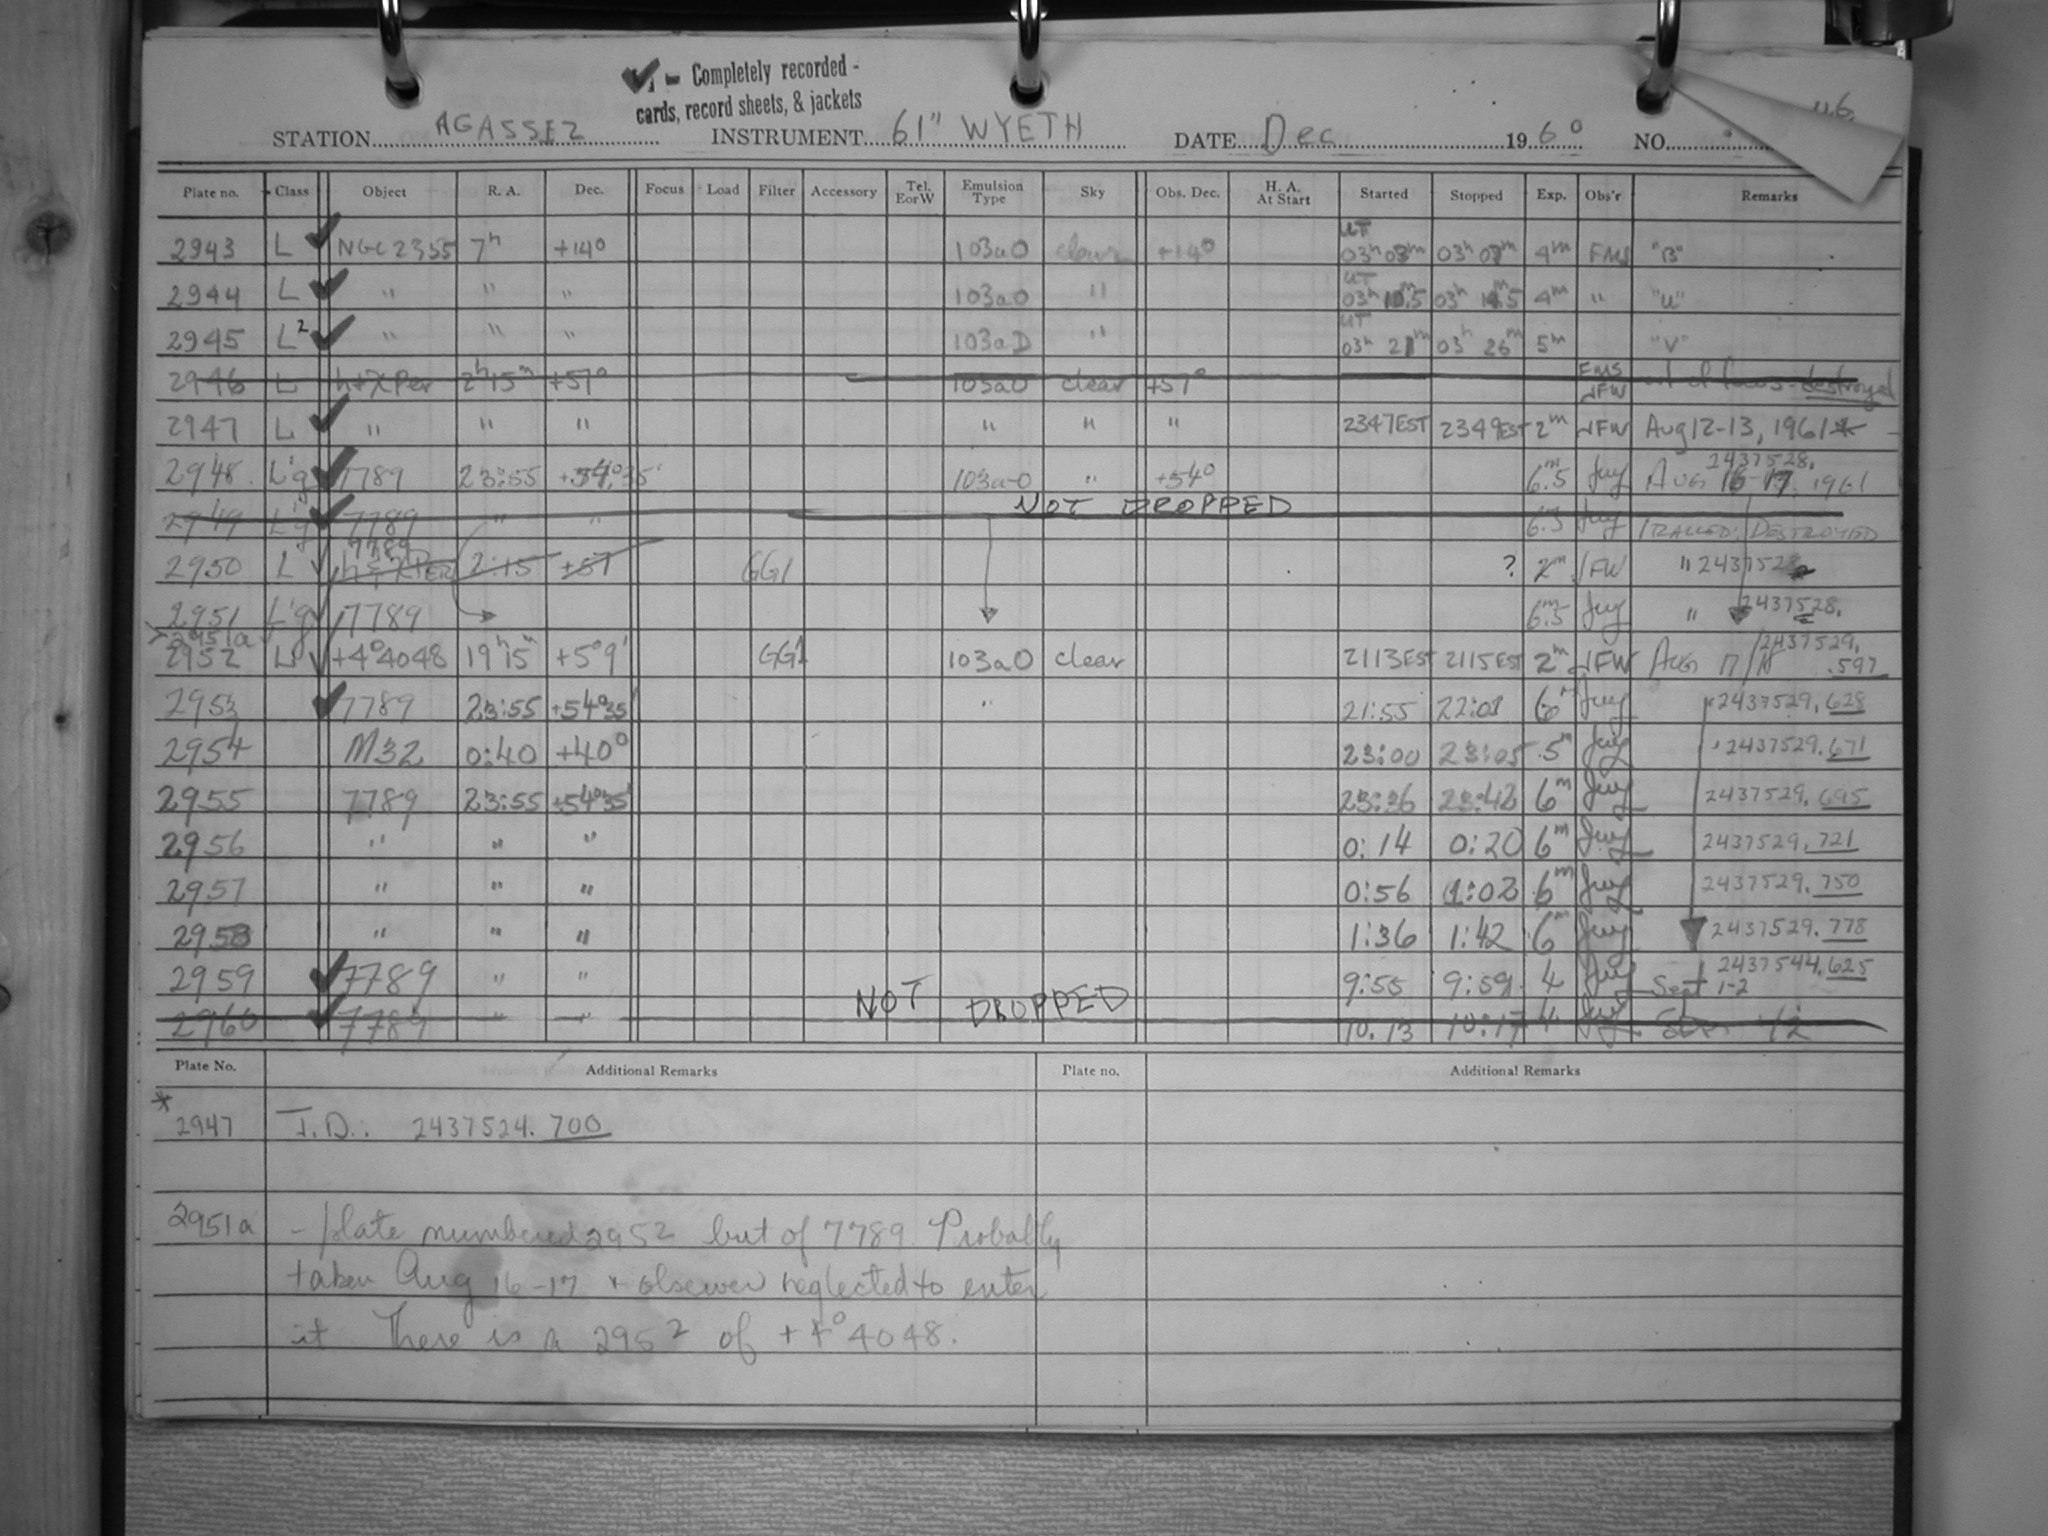 ✓ - Completely recorded -
cards, record sheets, & jackets
STATION AGASSEZ INSTRUMENT 61" WYETH DATE Dec 1960 NO. 116
Plate no. Class Object R. A. Dec. Focus Load Filter Accessory Tel. EorW Emulsion Type Sky Obs. Dec. H. A. At Start Started Stopped Exp. Obs'r Remarks
2943 L ✓ NGC 2355 7h +14° 103aO clear +14° UT 03h 03m 03h 07m 4m FMS "B"
2944 L ✓ " " " 103aO " UT 03h 10m.5 03h 14m.5 4m " "U"
2945 L² ✓ " " " 103aD " UT 03h 21m 03h 26m 5m "V"
2946 L h+χ Per 2h15m +57° 103aO clear +57° FMS JFW out of focus - destroyed
2947 L ✓ " " " " " " 2347EST 2349EST 2m JFW Aug 12-13, 1961 *
2948 L'g ✓ 7789 23:55 +54°35' 103a-O " +54° 6m.5 Aug 16-17, 1961 2437528.
NOT DROPPED
2949 L'g ✓ 7789 " " 6.5 TRAILED: DESTROYED
7789
2950 L ✓ h & χ PER 2:15 +57 GG1 ? 2m JFW " 2437528
2951 L'g ✓ 7789 6m.5 " 2437528.
2951a
2952 L ✓ +4°4048 19h15m +5°9' GG1 103aO clear 2113EST 2115EST 2m JFW Aug 17/18 2437529.597
2953 ✓ 7789 23:55 +54°35' " 21:55 22:01 6m 2437529.628
2954 M32 0:40 +40° 23:00 23:05 5m 2437529.671
2955 7789 23:55 +54°35' 23:36 23:42 6m 2437529.695
2956 " " " 0:14 0:20 6m 2437529.721
2957 " " " 0:56 1:02 6m 2437529.750
2958 " " " 1:36 1:42 6m 2437529.778
2959 ✓ 7789 " " 9:55 9:59 4 Sept 1-2 2437544.625
NOT DROPPED
2960 ✓ 7789 " " 10:13 10:17 4 Sept 1/2
Plate No. Additional Remarks Plate no. Additional Remarks
* 2947 J.D.: 2437524.700
2951a - plate numbered 2952 but of 7789. Probably
taken Aug 16-17 & observer neglected to enter
it There is a 2952 of +4°4048.